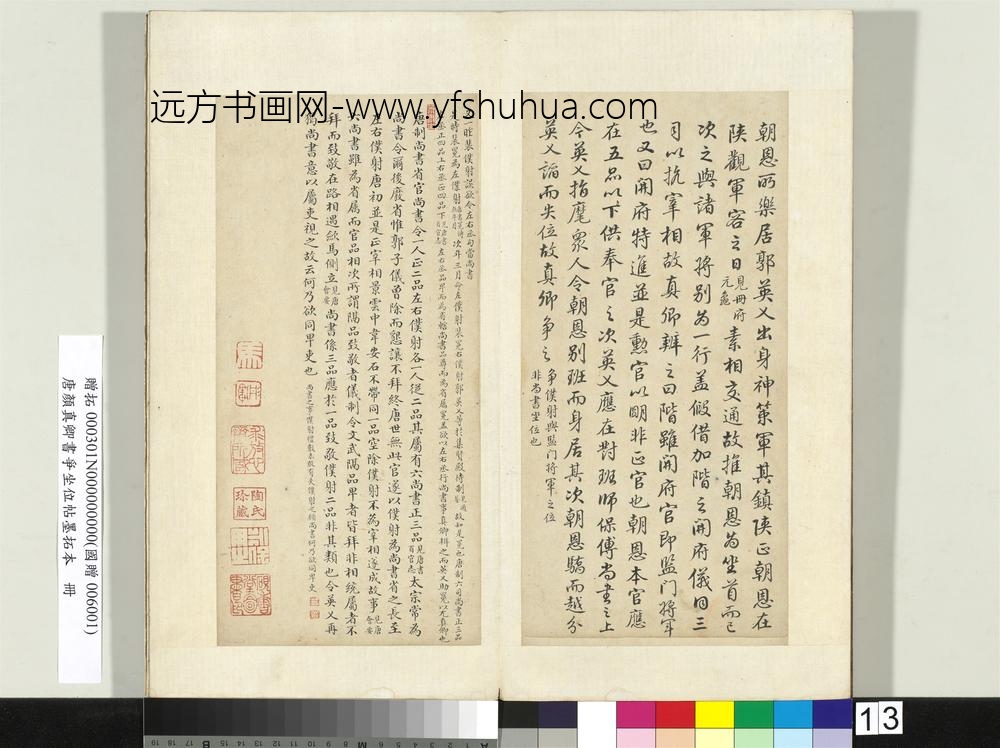 远方书画网-www.yfshuhua.com
朝恩所樂居郭英乂出身神策軍其鎮陝正朝恩在
陝觀軍容之日見冊府元龜素相交通故推朝恩為坐首而己
次之與諸軍將别為一行蓋假借加階之開府儀同三
司以抗宰相故真卿辨之曰階雖開府官即監门將軍
也又曰開府特進並是勲官以明非正官也朝恩本官應
在五品以下供奉官之次英乂應在對班師保傅尚書之上
今英乂指麾衆人令朝恩别班而身居其次朝恩驕而越分
英乂諂而失位故真卿争之争僕射與監门將軍之位非尚書坐位也
一時裴僕射誤欲令左右丞勾當尚書
唐制尚書省官尚書令一人正二品左右僕射各一人從二品其屬有六尚書正三品見唐書百官志太宗常為
尚書令爾後廢省惟郭子儀曾除而懇讓不拜終唐世無此官遂以僕射為尚書省之長至
左右僕射唐初並是正宰相景雲中韋安石不帶同一品空除僕射不為宰相遂成故事見唐會要
六尚書雖為省屬而官品相次所謂隔品致敬者儀制令文武隔品卑者皆拜非相統屬者不
拜而致敬在路相遇歛馬側立見唐會要尚書係三品應於一品致敬僕射二品非其類也今英乂再
獨尚書意以屬吏視之故云何乃欲同卑吏也
陶氏珍藏
贈拓 000301N000000000(國贈 006001)
唐顏真卿書爭坐位帖墨拓本 冊
13